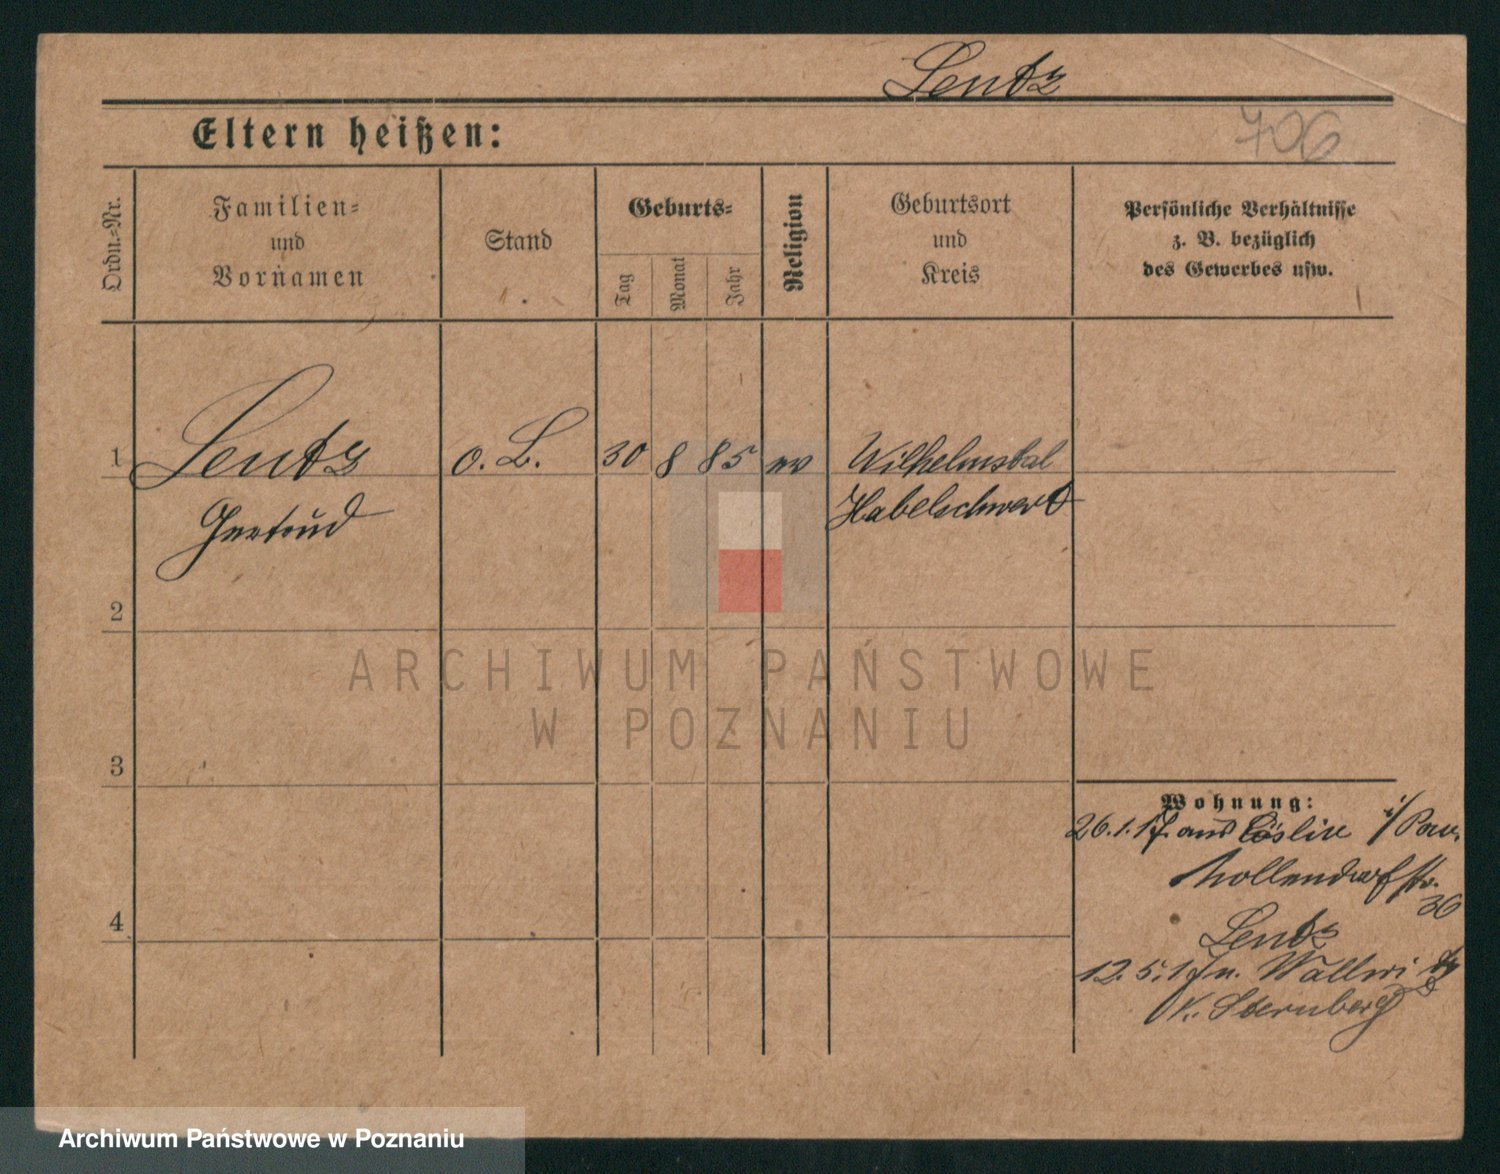 Lentz
706
Eltern heißen:
Ordn.-Nr.
Familien-
und
Vornamen
Stand
Geburts-
Tag
Monat
Jahr
Religion
Geburtsort
und
Kreis
Persönliche Verhältnisse
z. B. bezüglich
des Gewerbes usw.
1 Lentz o. B. 30 8 85 ev Wilhelmstal
Gertrud Habelschwert
2
3
4
Wohnung:
26.1.17 aus Cöslin i/Pom.
Nollendorfstr.
36
Lentz
12.5.17 n. Wallwitz
K. Sternberg
ARCHIWUM PAŃSTWOWE
W POZNANIU
Archiwum Państwowe w Poznaniu